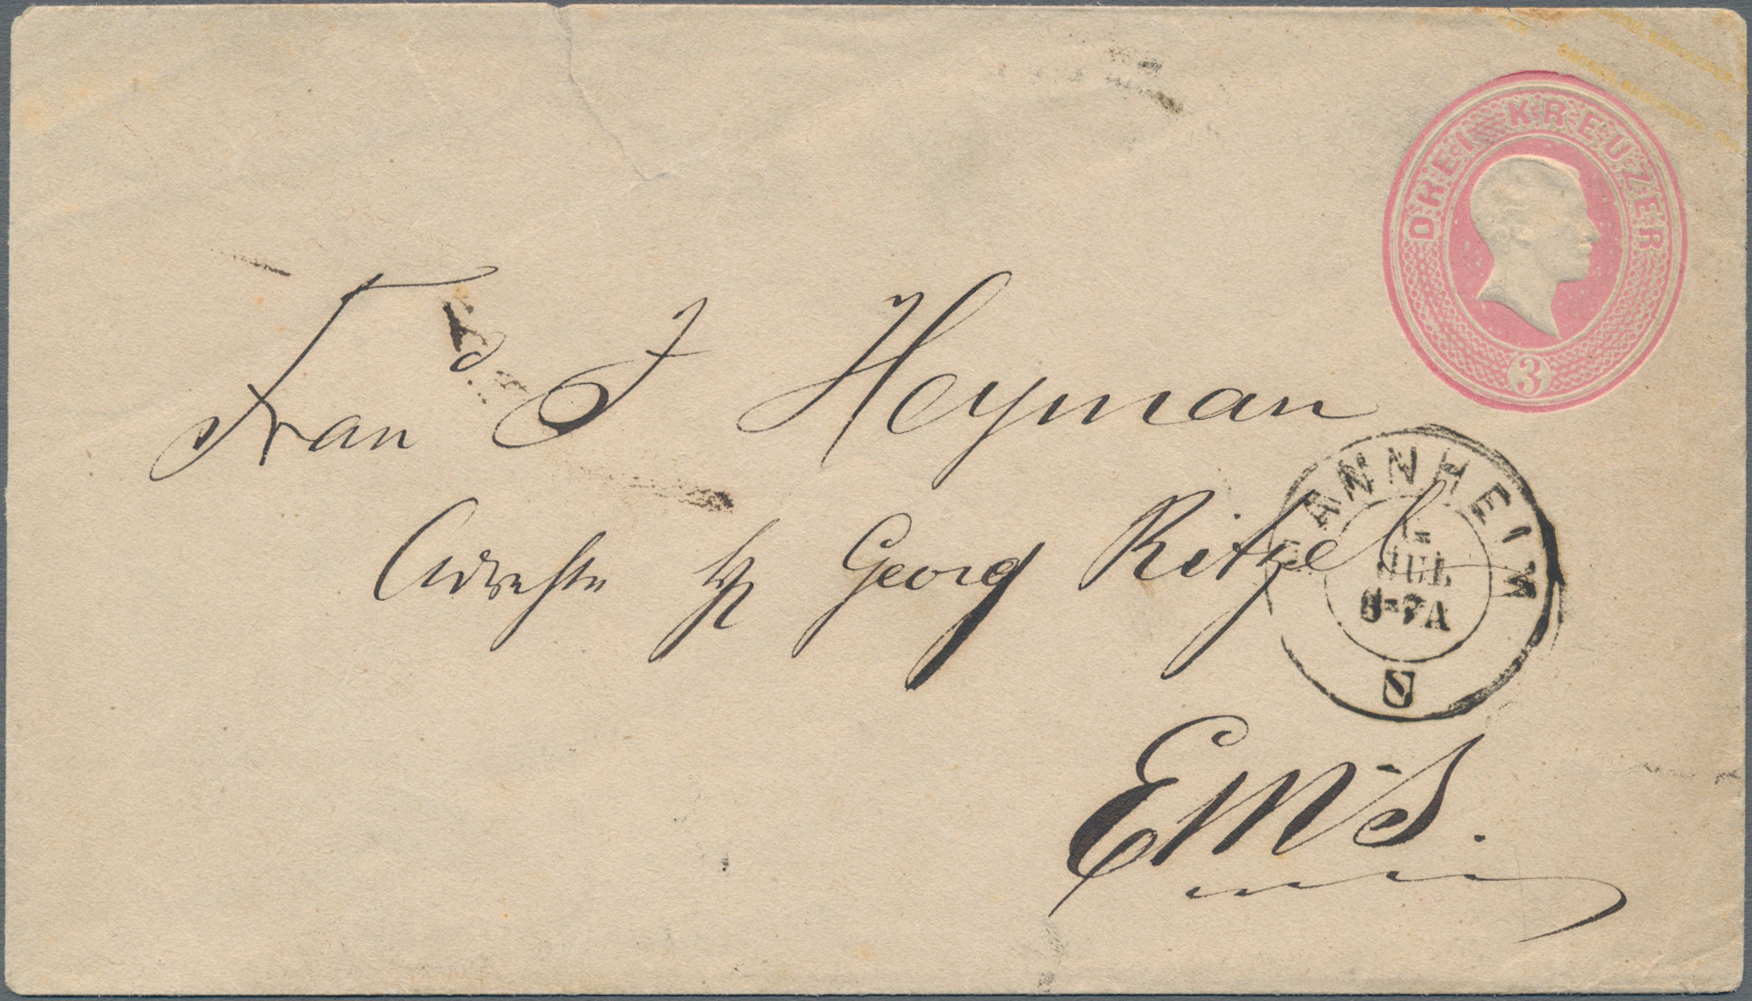 DREI KREUZER
3
Frau J Heyman
Adresse Hr Georg Ritzel
MANNHEIM
1=
JUL
6-7A
Ems.